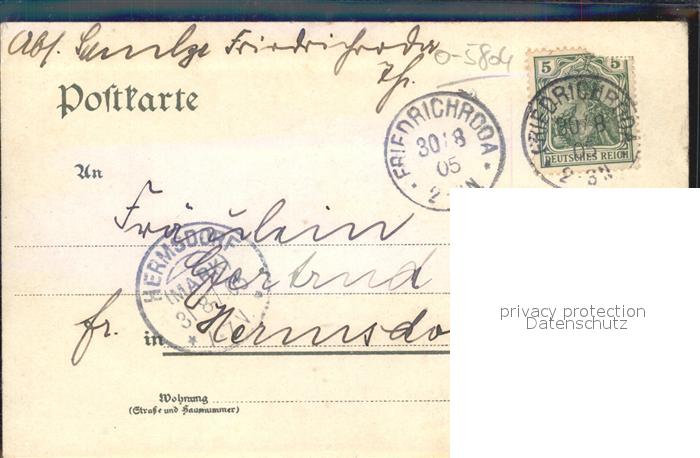 Abs. Friedrichroda
Th. 0-5804
Postkarte
5 5
DEUTSCHES REICH
FRIEDRICHRODA
30/8
05
2-3N
FRIEDRICHRODA
30/8
05
2-3N
An
Fräulein
Gertrud
HERMSDORF
fr. in Hermsdo
Wohnung
(Straße und Hausnummer)
privacy protection
Datenschutz